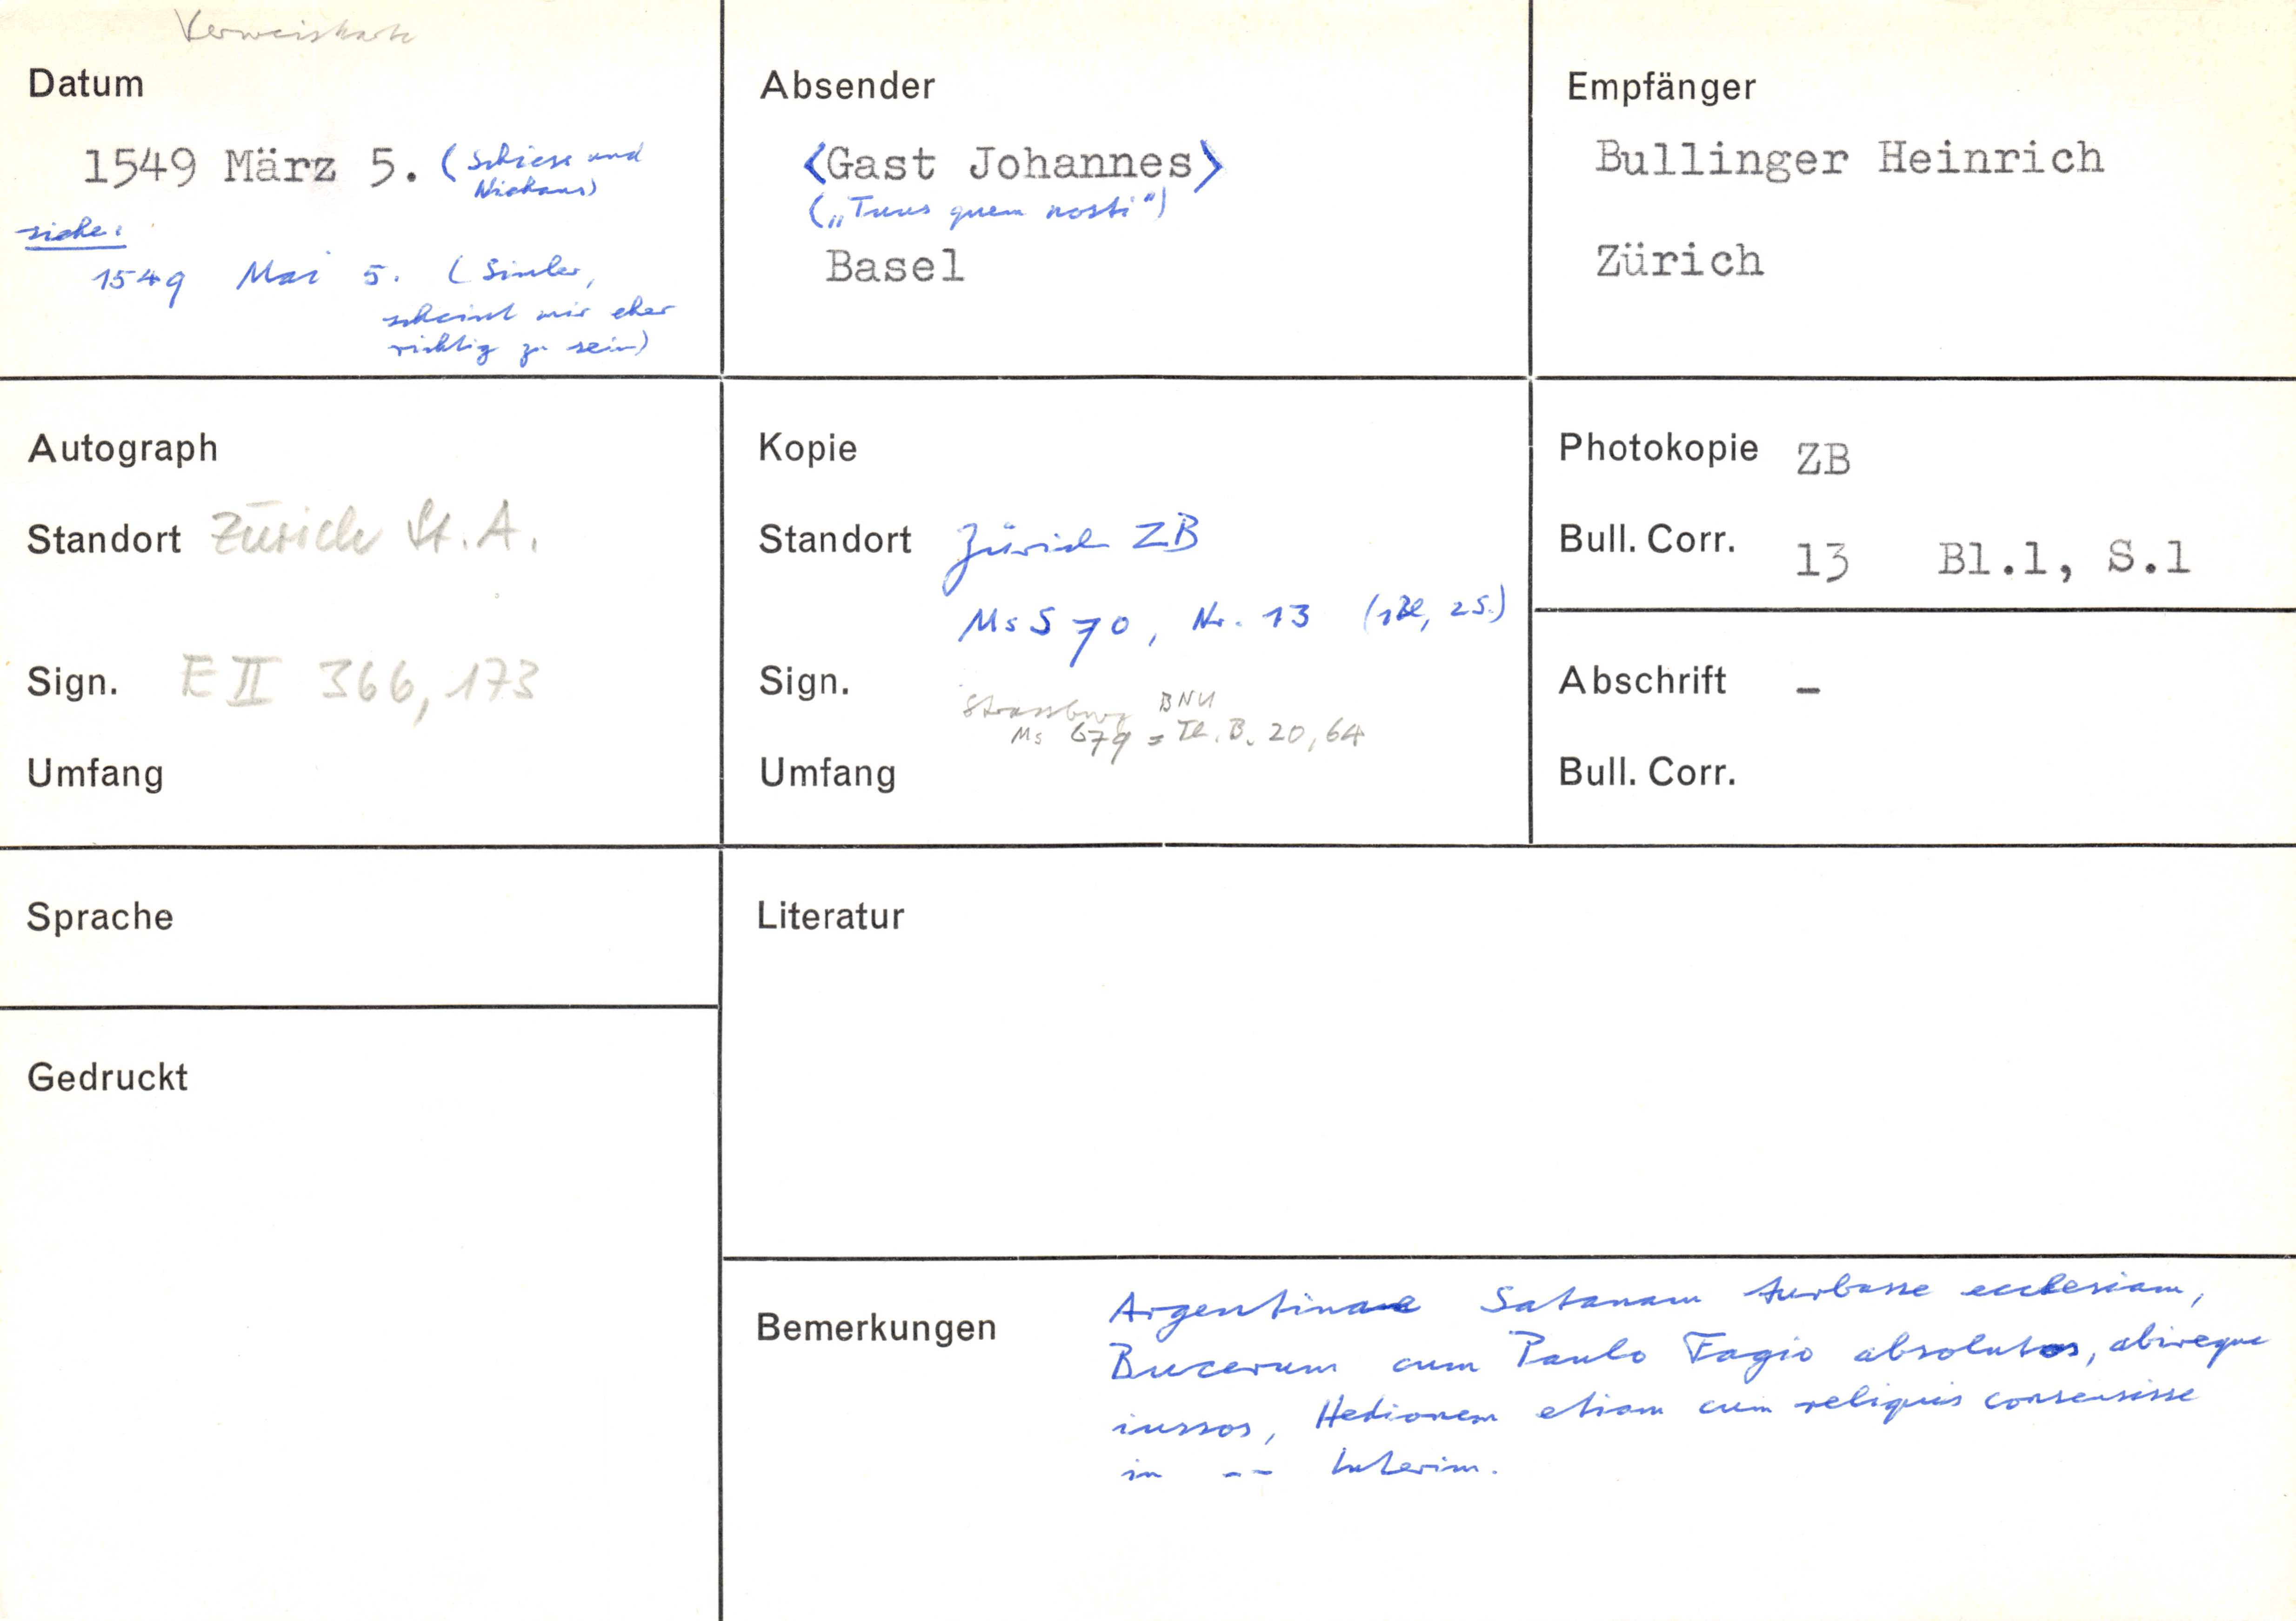 Verweiskarte
Datum
1549 März 5. (Schiess und
Niehans)
siehe:
1549 Mai 5. (Simler,
scheint mir eher
richtig zu sein)
Absender
<Gast Johannes>
(„Tuus quem nosti")
Basel
Empfänger
Bullinger Heinrich
Zürich
Autograph
Standort Zürich St.A.
Sign. E II 366, 173
Umfang
Kopie
Standort Zürich ZB
Ms S 70, Nr. 13 (1Bl, 2S.)
Sign.
Strassburg BNU
Ms 679 = Th. B. 20, 64
Umfang
Photokopie ZB
Bull. Corr. 13 Bl.1, S.1
Abschrift -
Bull. Corr.
Sprache
Gedruckt
Literatur
Bemerkungen
Argentinae Satanam turbasse ecclesiam,
Bucerum cum Paulo Fagio absolutos, abireque
iussos, Hedionem etiam cum reliquis consensisse
in -- Interim.